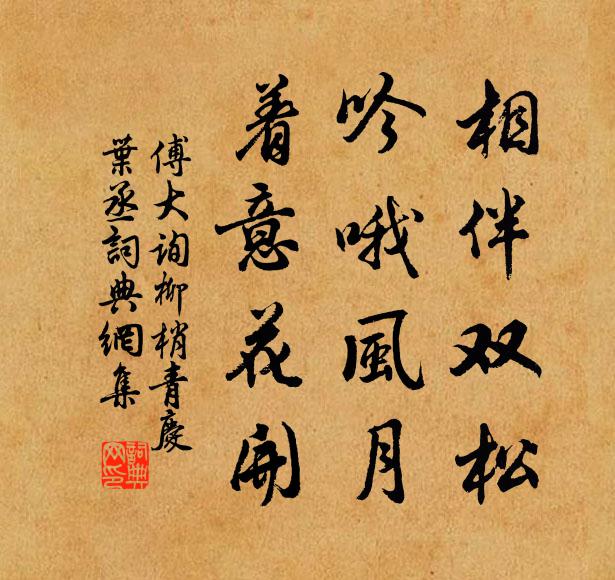 相伴双松
吟哦風月
着意花開
傅大询柳梢青慶
葉丞詞典網集
詞典
网印